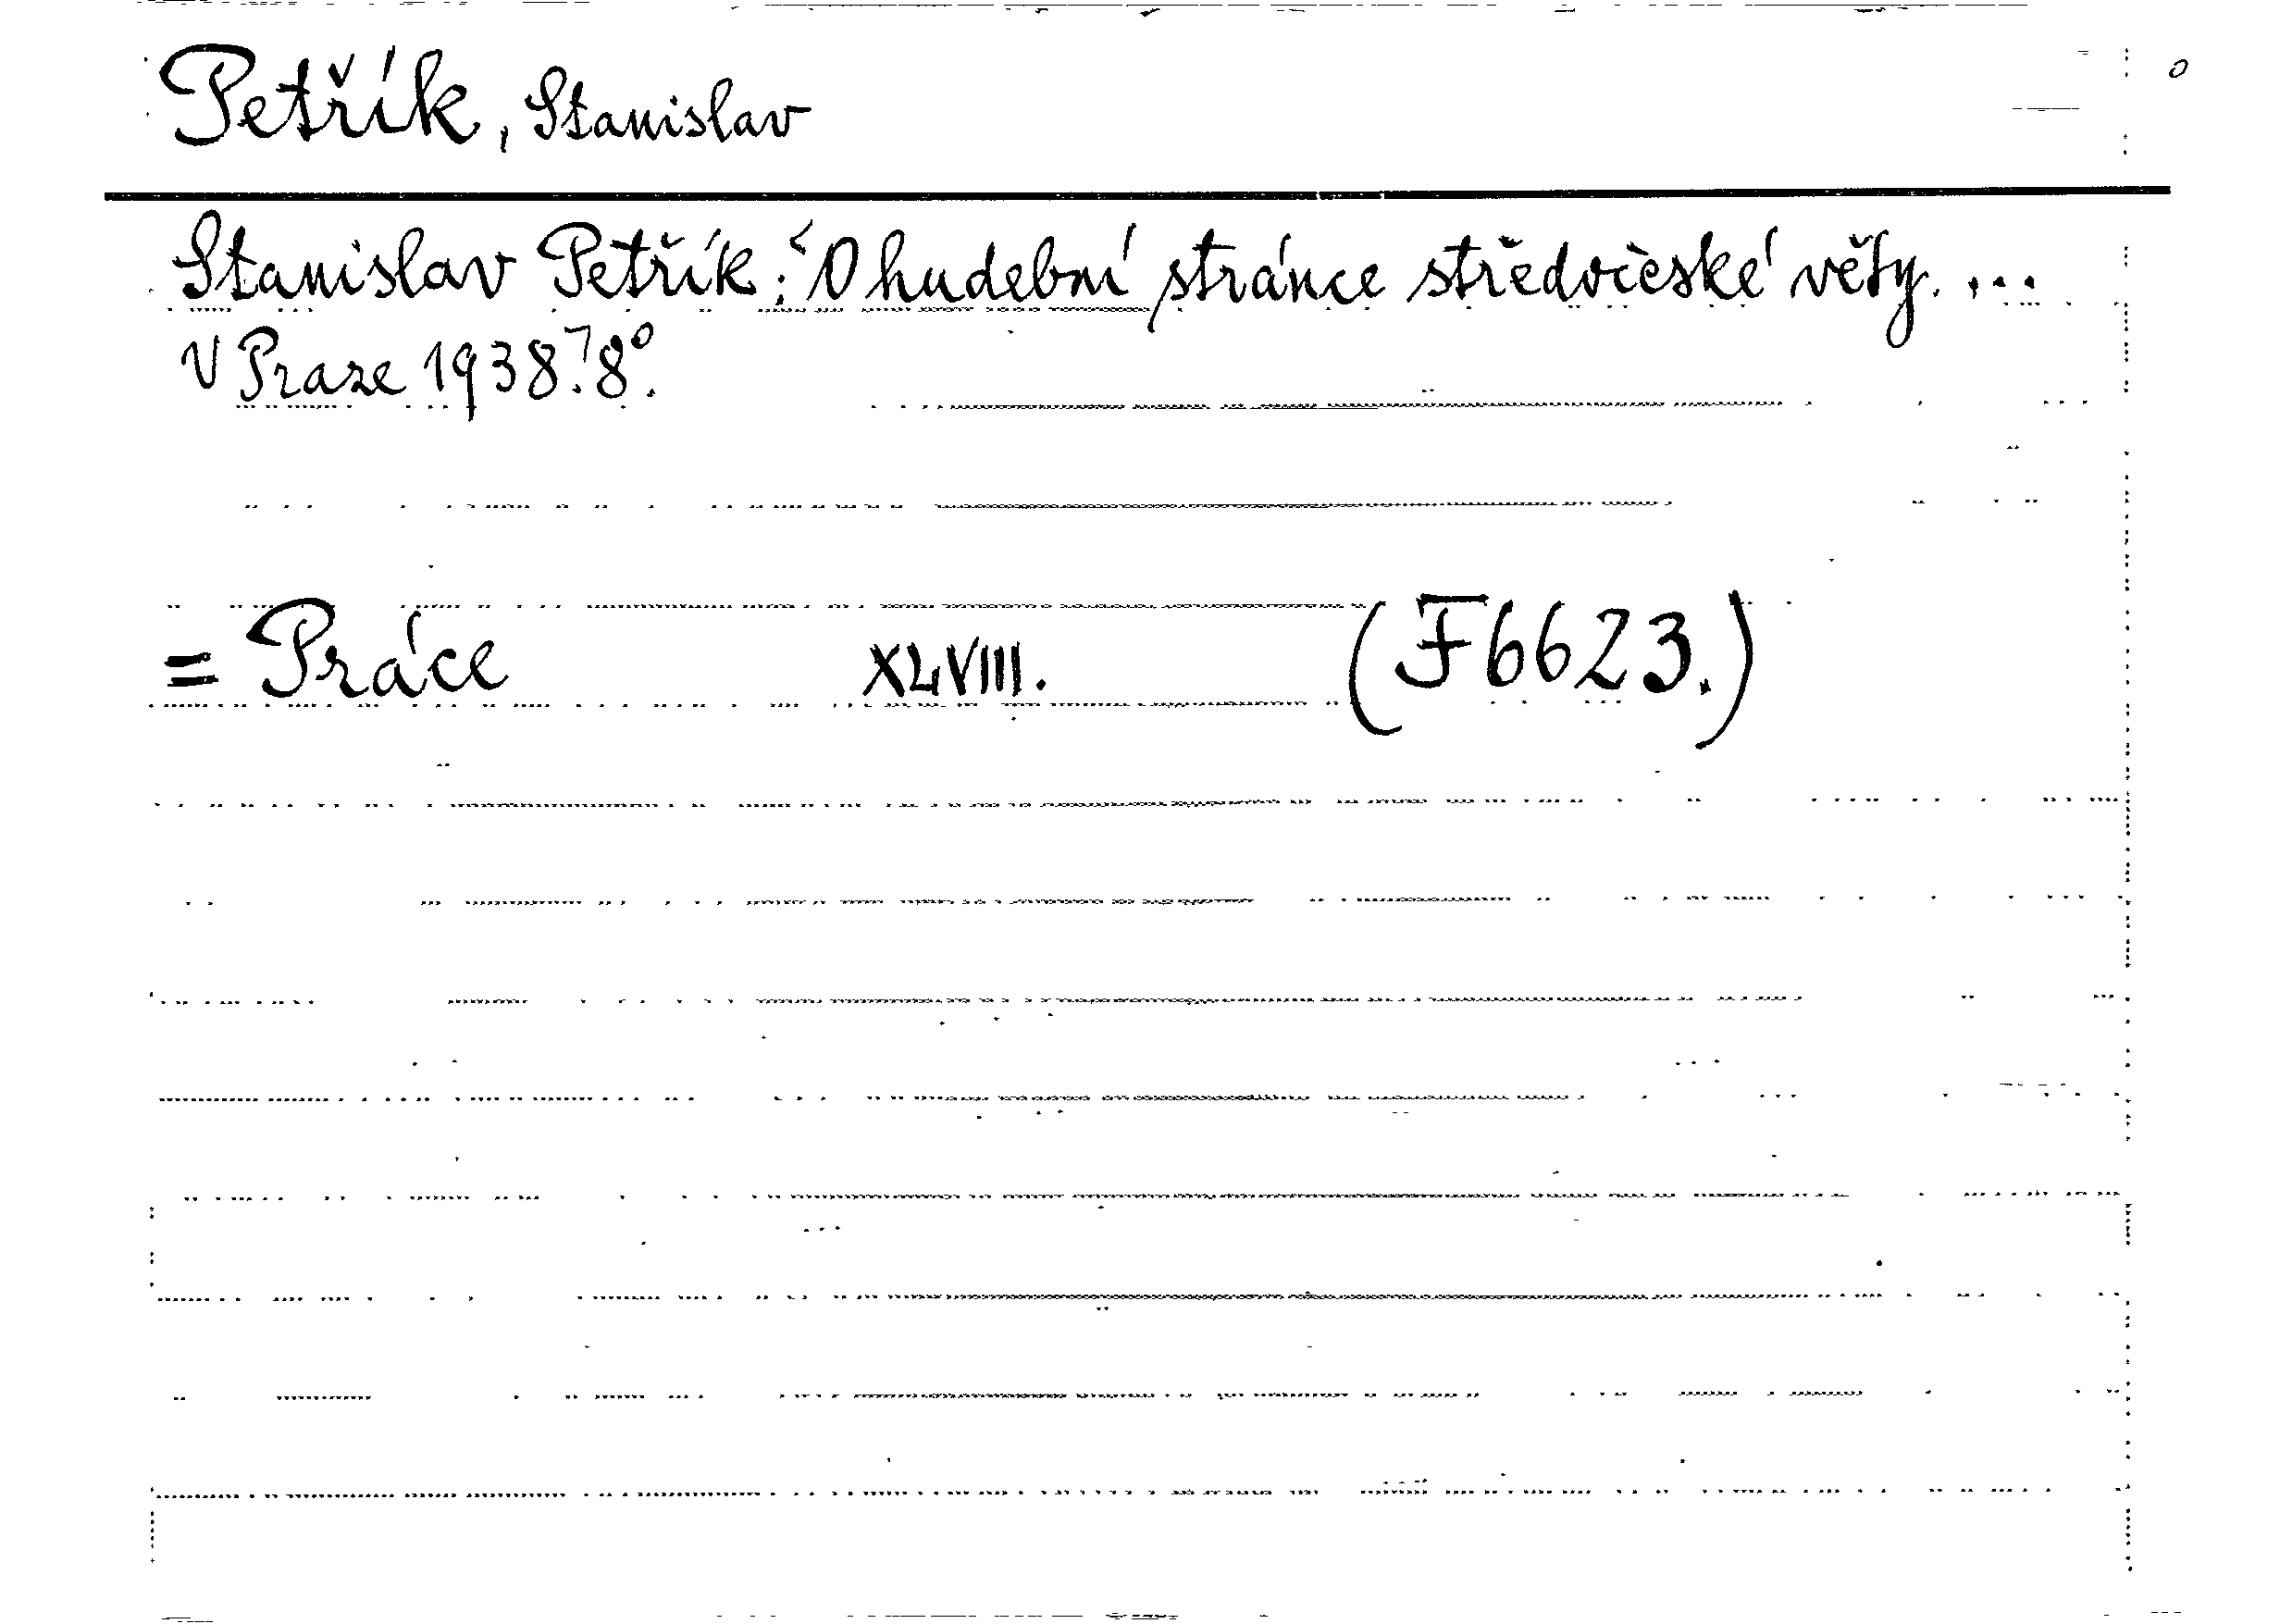 Petřík, Stanislav
Stanislav Petřík: O hudební stránce středočeské věty. ...
V Praze 1938. 8°.
= Práce XLVIII. (F6623.)